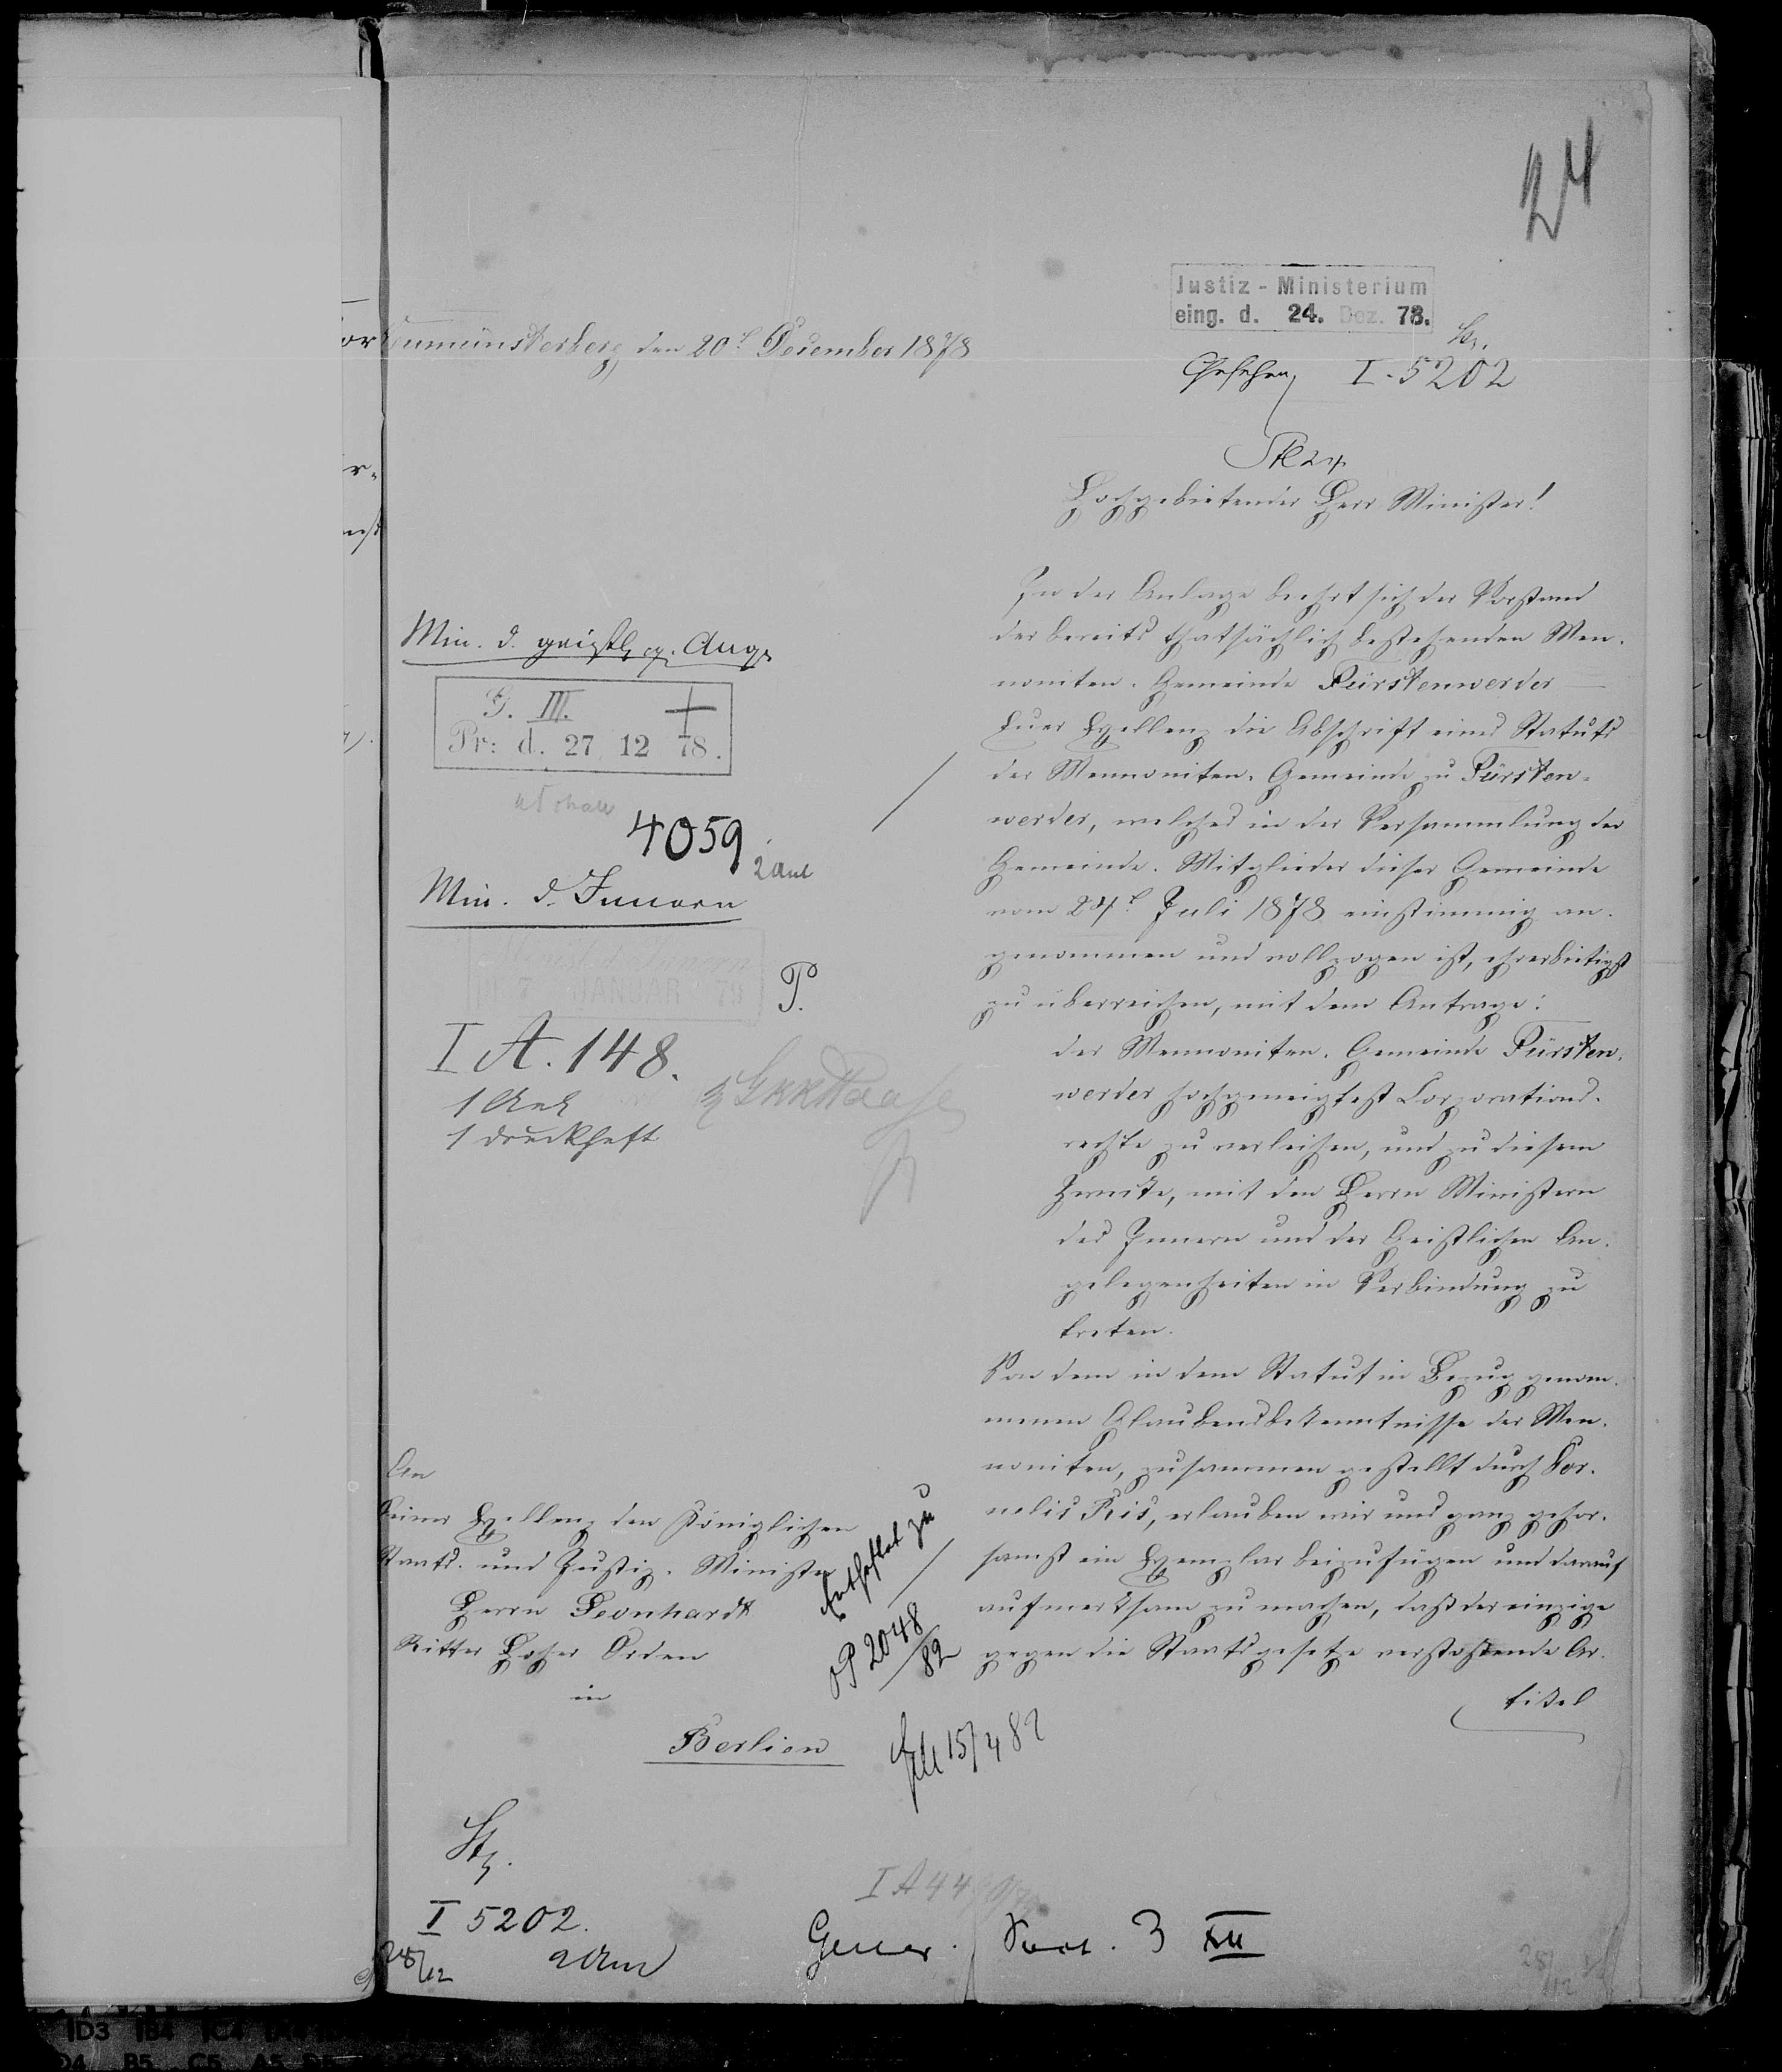 24
Justiz-Ministerium
eing. d. 24. Dez. 78.
Neumünsterberg, den 20t. Dezember 1878
Gesehen I. 5202
Hochgebietender Herr Minister!
In der Anlage beehrt sich der Vorstand
der bereits thatsächlich bestehenden Men-
noniten-Gemeinde Fürstenwerder
Euer Exellenz die Abschrift eines Statuts
der Mennoniten-Gemeinde zu Fürsten-
werder, welches in der Versammlung der
Gemeinde-Mitglieder dieser Gemeinde
vom 24t. Juli 1878 einstimmig an-
genommen und vollzogen ist, ehrerbietigst
zu überreichen, mit dem Antrage:
der Mennoniten-Gemeinde Fürsten-
werder hochgeneigtest Corporations-
rechte zu verleihen, und zu diesem
Zwecke, mit den Herrn Ministern
des Innern und der Geistlichen An-
gelegenheiten in Verbindung zu
treten.
Von dem in dem Statut in Bezug genom-
menen Glaubensbekenntnisse der Men-
noniten, zusammen gestellt durch Cor-
nelis Ris, erlauben wir uns ganz gehor-
samst ein Exemplar beizufügen und darauf
aufmerksam zu machen, daß der einzige
gegen die Staatsgesetze verstoßende Ar-
tikel
Min. d. geistl. p. Ang.
G. III.
Pr: d. 27 12 78.
4059
2 Anl
Min. d. Innern
Minist. d. Innern
7 JANUAR 79
P.
I A. 148.
1 Anl
1 Druckheft
An
Seiner Exellenz den Königlichen
Staats- und Justiz-Minister
Herrn Leonhardt
Ritter Hoher Orden
in
Berlien
zu
OP 2048/82
15/4 82
I 5202.
28/12
I A 44
Gener. 3 XII
28/12